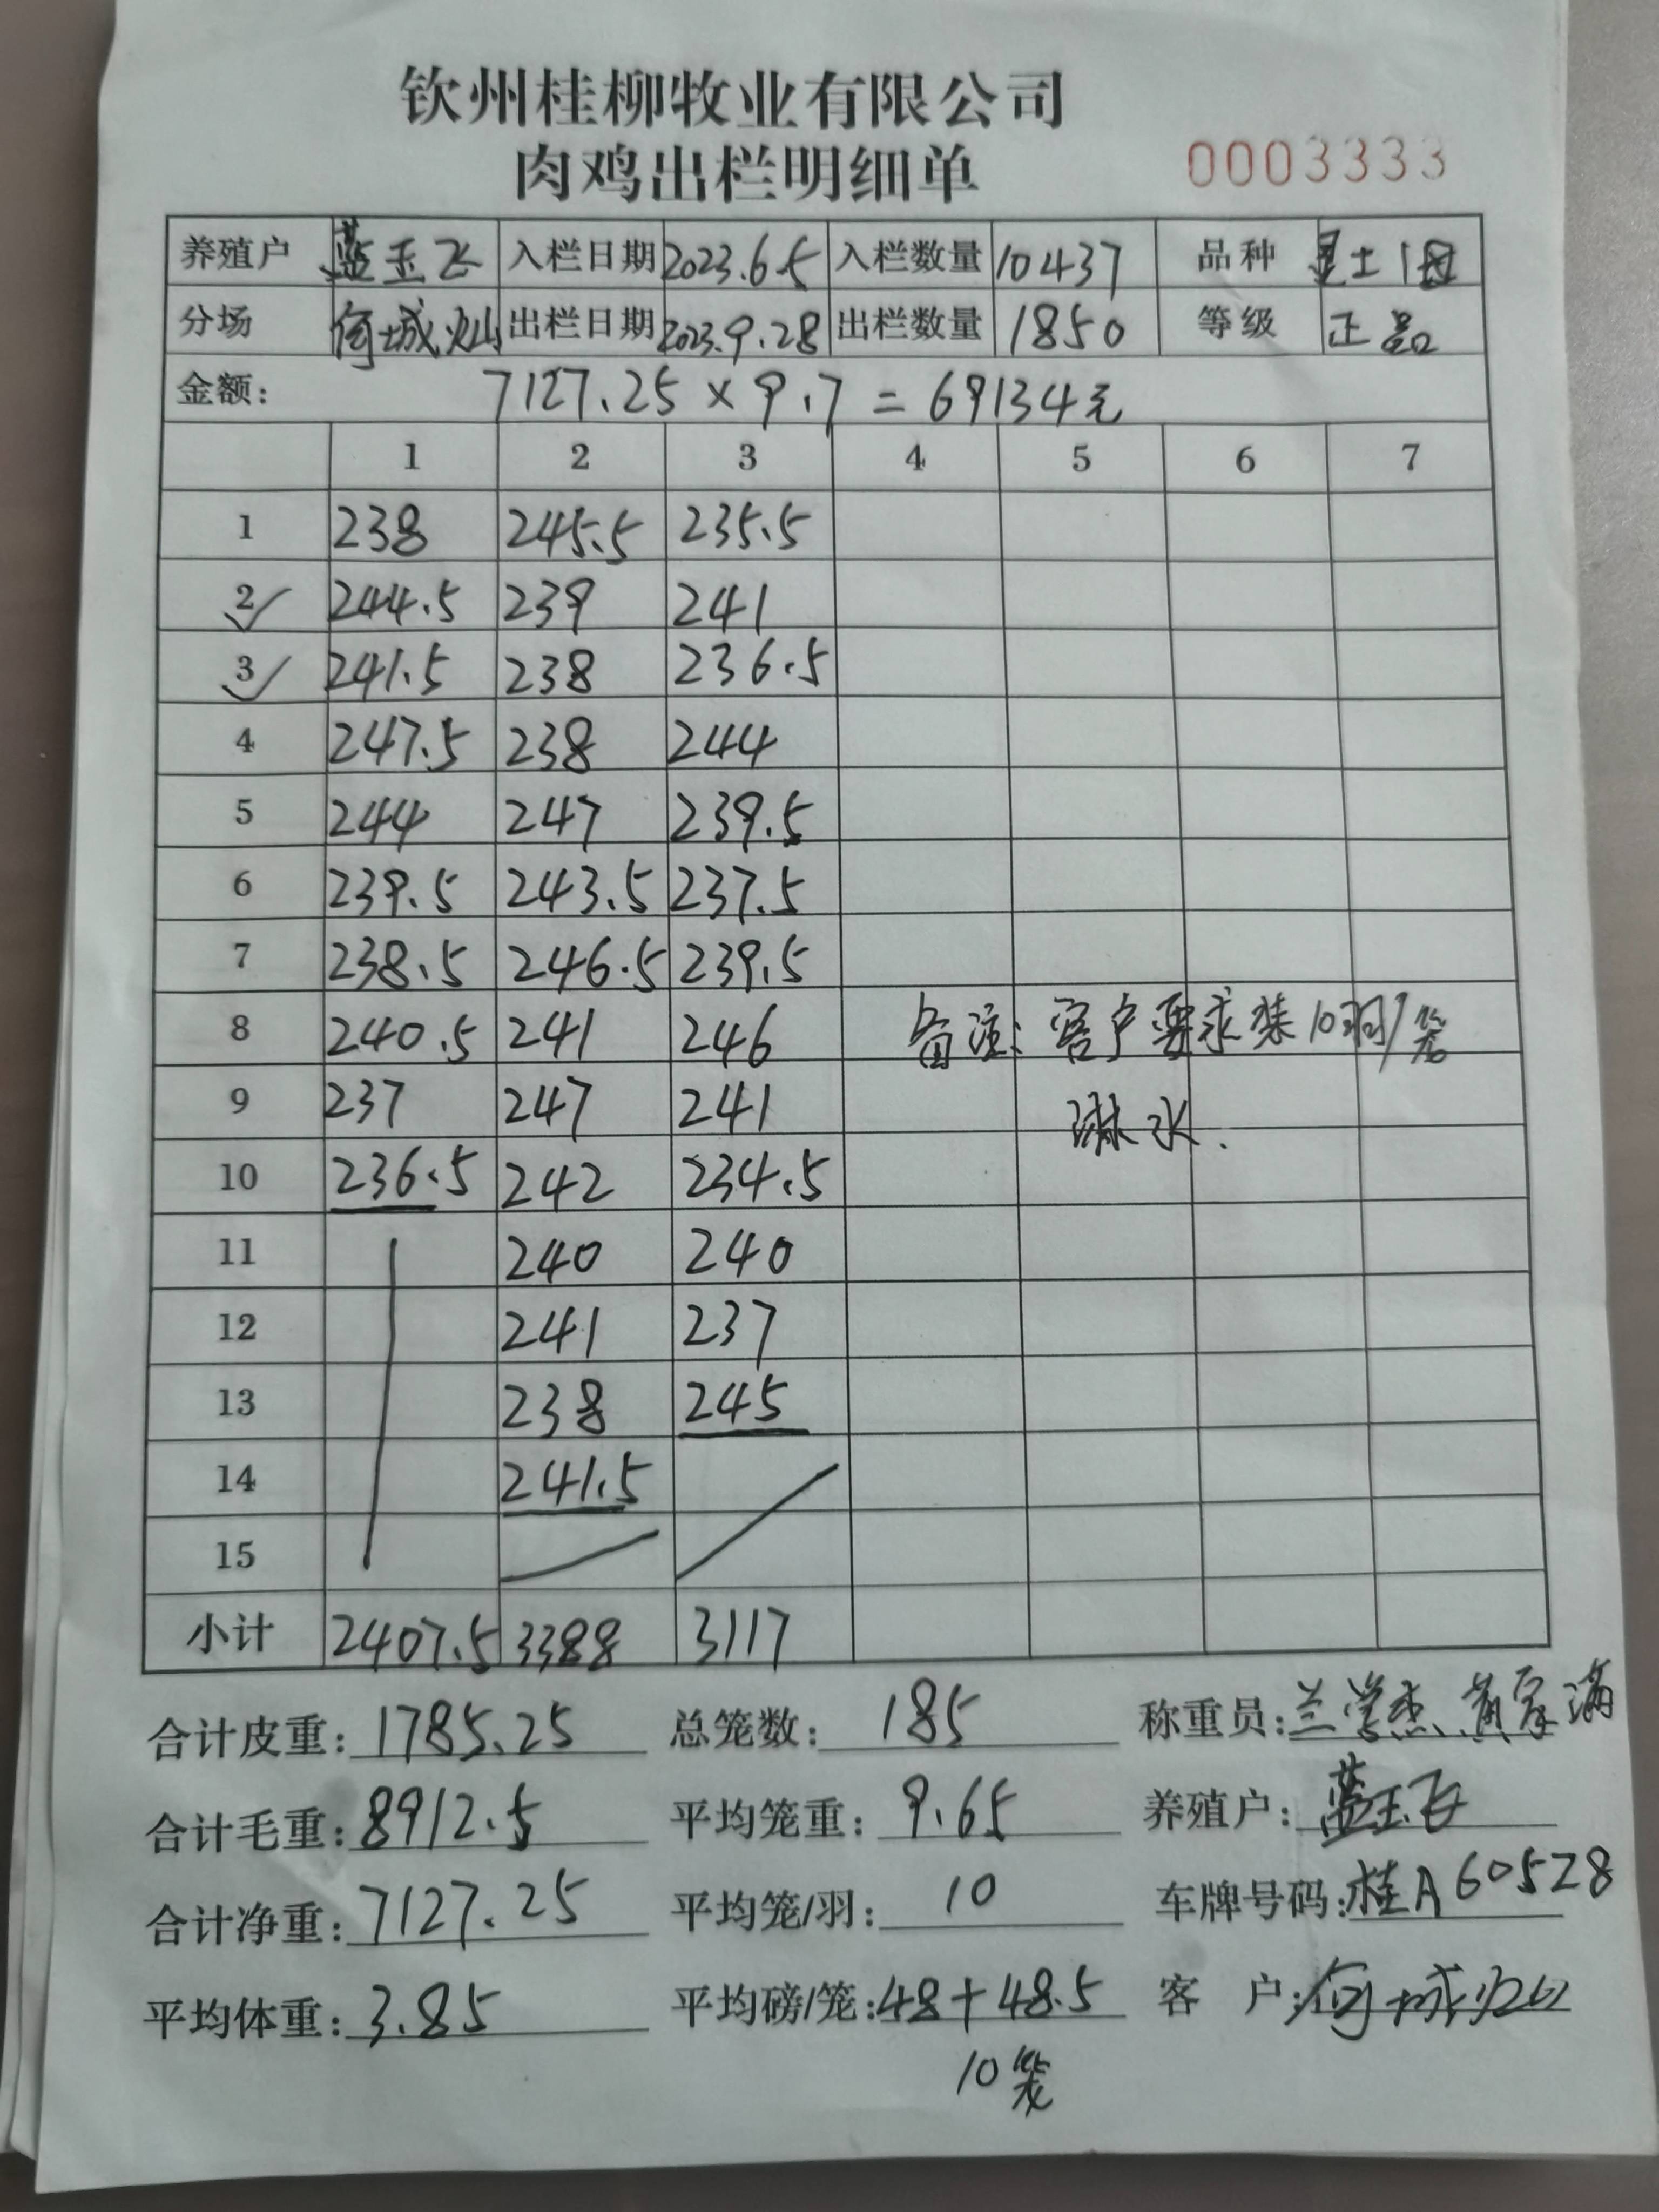 钦州桂柳牧业有限公司
肉鸡出栏明细单 0003333
养殖户 蓝玉飞 入栏日期 2023.6.5 入栏数量 10437 品种 土1母
分场 何城灿 出栏日期 2023.9.28 出栏数量 1850 等级 正品
金额: 7127.25 × 9.7 = 69134元
1 2 3 4 5 6 7
1 238 245.5 235.5
2 244.5 239 241
3 241.5 238 236.5
4 247.5 238 244
5 244 247 239.5
6 239.5 243.5 237.5
7 238.5 246.5 239.5
8 240.5 241 246 备注: 客户要求装10羽/笼
9 237 247 241 淋水.
10 236.5 242 234.5
11 240 240
12 241 237
13 238 245
14 241.5
15
小计 2407.5 3388 3117
合计皮重: 1785.25 总笼数: 185 称重员: 兰学杰 黄家满
合计毛重: 8912.5 平均笼重: 9.65 养殖户: 蓝玉飞
合计净重: 7127.25 平均笼/羽: 10 车牌号码: 桂A60528
平均体重: 3.85 平均磅/笼: 48+48.5 客 户: 何城灿
10笼